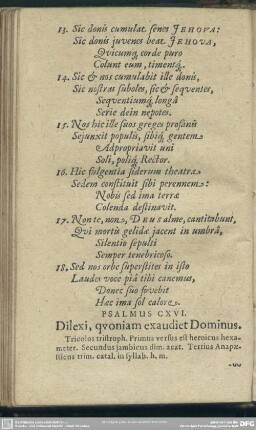 13. Sic donis cumulat senes JEHOVA:
Sic donis juvenes beat JEHOVA,
Qvicumq; corde puro
Colunt eum, timentq;.
14. Sic & nos cumulabit ille donis,
Sic nostras suboles, sic & seqventes,
Seqventiumq; longâ
Serie dein nepotes.
15. Nos hic ille suos greges profanis
Sejunxit populis, sibiq; gentem
Adpropriavit uni
Soli, poliq; Rector.
16. Hic fulgentia siderum theatra
Sedem constituit sibi perennem:
Nobis sed ima terræ
Colenda destinavit.
17. Non te, non, DEUS alme, cantitabunt,
Qvi mortis gelidæ jacent in umbrâ,
Silentio sepulti
Semper tenebricoso.
18. Sed nos orbe superstites in isto
Laudes voce piâ tibi canemus,
Donec suo fovebit
Hæc ima sol calore.
PSALMUS CXVI.
Dilexi, qvoniam exaudiet Dominus.
Tricolos tristroph. Primus versus est heroicus hexa-
meter. Secundus jambicus dim. acat. Tertius Anapæ-
sticus trim. catal. in syllab. h. m.